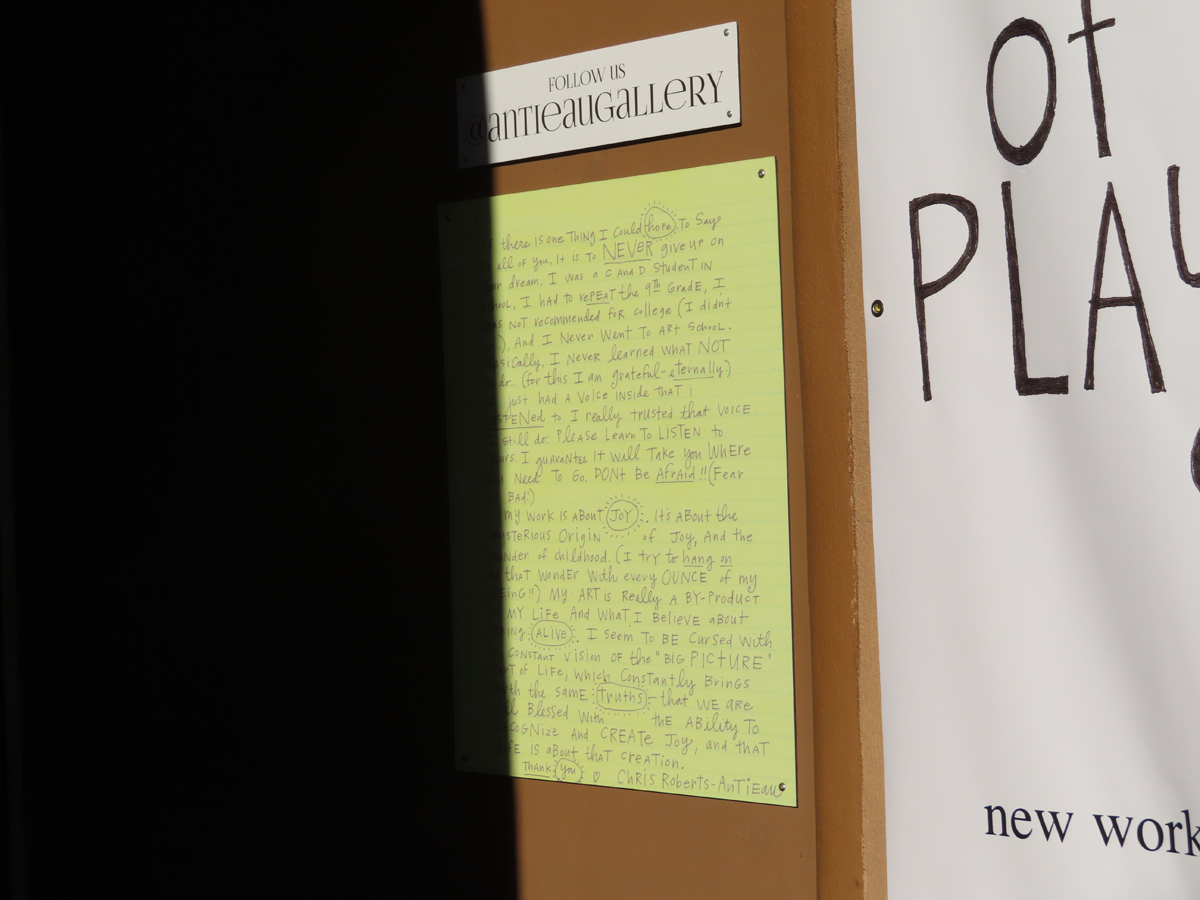 FOLLOW US
@antieaugallery
there is one Thing I Could hope To Say
all of you, It is To NEVER give up on
dream. I was a C AND D Student IN
I had to rePEAT the 9th GradE, I
NOT recommended foR college (I didnt
), And I Never Went To ARt School.
I Never learned whAT NOT
do. (for this I am grateful- eternally)
just hAD A Voice Inside ThaT i
to. I really trusted that VOICE
still do. Please Learn To LISTEN to
I guaranTEE It will Take you WhEre
Need To Go. DONt Be AfrAid!! (Fear
BAd!)
my work Is ABouT JOY. It's ABout the
Origin of Joy, And the
of childhood. (I try to hang on
that WondEr With every OUNCE of my
) My ART is Really A BY-Product
MY LiFe And WhaT I BelievE aBouT
ALIVE. I seem To BE Cursed With
CONSTANT Vision OF the "BIG PICTURE"
of LiFe, which Constantly Brings
the SAME Truths - that WE ARe
Blessed With the ABility To
And CREATe Joy, and thAT
IS aBout thaT creaTion.
ThAnk You ♡ ChRis RobeRts-AnTiEau
Of
PLA
new work